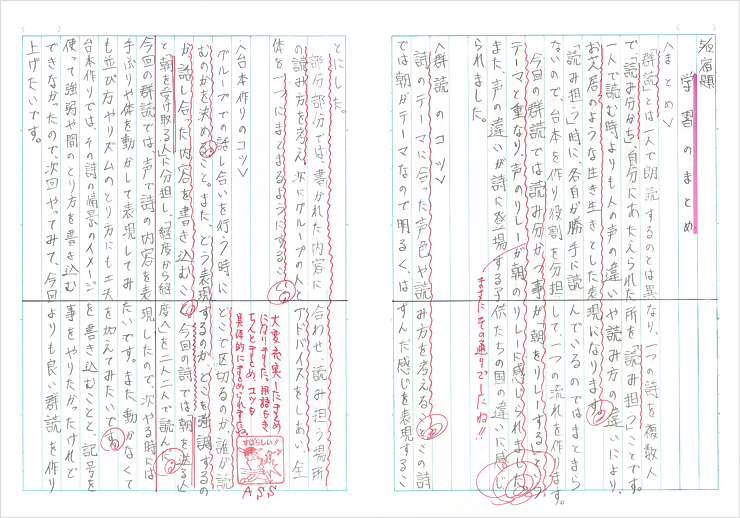 5/2 宿題
学習のまとめ
〈まとめ〉
「群読」とは一人で朗読するのとは異なり、一つの詩を複数人
で、「読み分かち」、自分にあたえられた所を「読み担う」ことです。
一人で読む時よりも人の声の違いや読み方の違いにより、
お芝居のような生き生きとした表現になります。
「読み担う」時に、各自が勝手に読んでいるのではまとまら
ないので、台本を作り役割を分担して、一つの流れを作ります。
今回の群読では「読み分かつ」事が「朝をリレーする」という
テーマと重なり、声のリレーが朝のリレーに感じられました。
また、声の違いが詩に登場する子供たちの国の違いに感じ
られました。
まさにその通りでしたね!!
〈群読のコツ〉
詩のテーマに合った声色や読み方を考えること。この詩
では朝がテーマなので明るく、はずんだ感じを表現するこ
とにした。
部分部分では、書かれた内容に合わせ、読み担う場所
の読み方を考え、次にグループの人とアドバイスをしあい、全
体を一つにまとまるようにすること。
〈台本作りのコツ〉
グループでの話し合いを行う時に、どこで区切るのか、誰が読
むのかを決めること。また、どう表現するのか、どこを強調するの
か、話し合った内容を書き込むこと。今回の詩では朝を送る人
と朝を受け取る人に分担し、「経度から経度へ」を二人二人で読んだ。
今回の群読では、声で詩の内容を表現したので、次やる時には
手ぶりや体を動かして表現してみたいです。また、動かなくて
も並び方やリズムのとり方にも工夫を加えてみたいです。
台本作りでは、その詩の情景のイメージを書き込むことと、記号を
使って強弱や間のとり方を書き込む事をやりたかったけれど
できなかったので、次回やってみて、今回よりも良い群読を作り
上げたいです。
大変充実したまとめ
になりました。用語もき
ちんとまとめ、コツも
具体的にまとめられましたね。
すばらしい!!
A.S.S